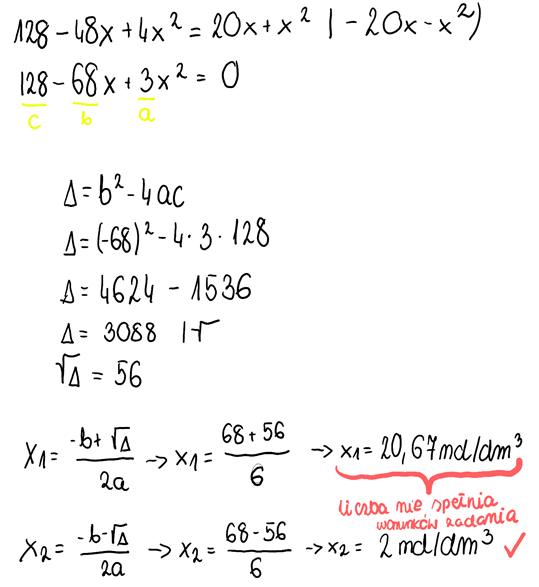 128 - 48x + 4x² = 20x + x² | - 20x - x²)
128 - 68x + 3x² = 0
c b a
Δ = b² - 4ac
Δ = (-68)² - 4 · 3 · 128
Δ = 4624 - 1536
Δ = 3088 |√
√Δ = 56
x1 = (-b+√Δ)/2a → x1 = (68+56)/6 → x1 = 20,67 mol/dm³
liczba nie spełnia
warunków zadania
x2 = (-b-√Δ)/2a → x2 = (68-56)/6 → x2 = 2 mol/dm³ ✓